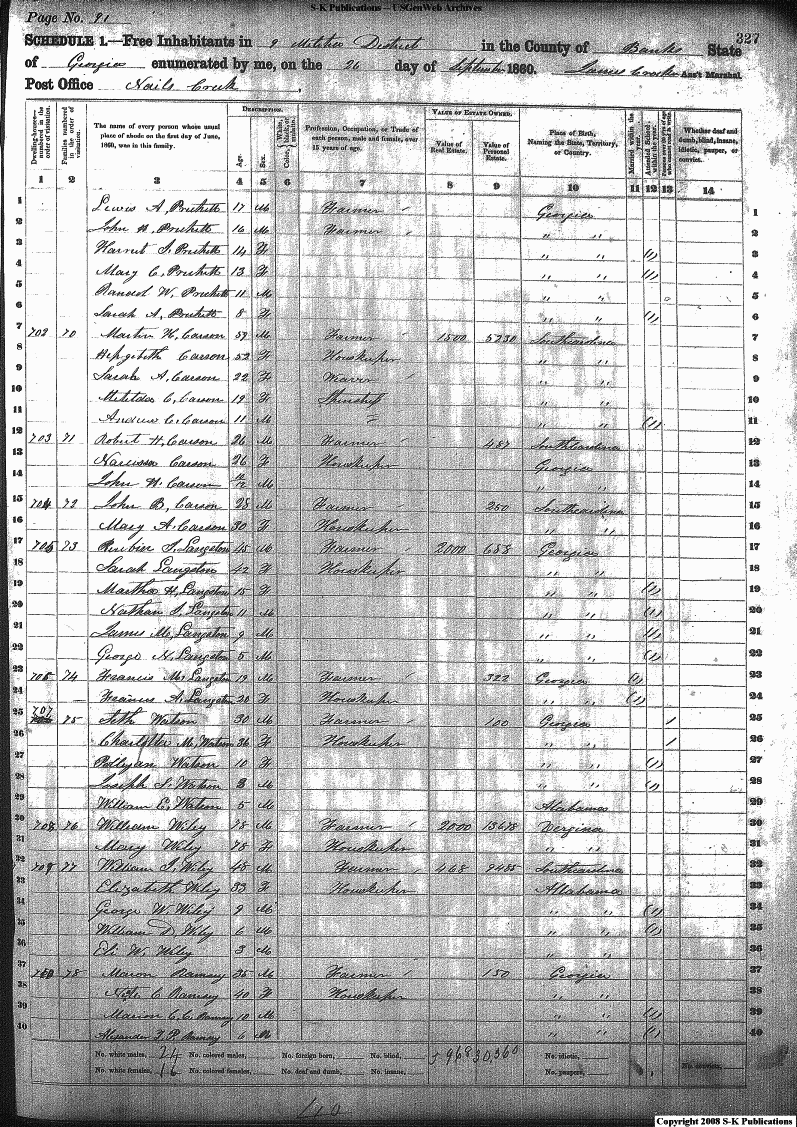 S-K Publications – USGenWeb Archives
Page No. 91
327
SCHEDULE 1.—Free Inhabitants in 9 Militia District in the County of Banks State
of Georgia enumerated by me, on the 26 day of September 1860. James Ass't Marshal.
Post Office Nails Creek,
DESCRIPTION.
VALUE OF ESTATE OWNED.
Dwelling-houses—numbered in the order of visitation.
Families numbered in the order of visitation.
The name of every person whose usual place of abode on the first day of June, 1860, was in this family.
Age.
Sex.
Color, White, black, or mulatto.
Profession, Occupation, or Trade of each person, male and female, over 15 years of age.
Value of Real Estate.
Value of Personal Estate.
Place of Birth, Naming the State, Territory, or Country.
Married within the year.
Attended School within the year.
Whether deaf and dumb, blind, insane, idiotic, pauper, or convict.
1 2 3 4 5 6 7 8 9 10 11 12 13 14
1 Lewis A, Prickett 17 M Farmer Georgia 1
2 John H, Prickett 16 M Farmer " " 2
3 Harriet Prickett 14 F " " (1) 3
4 Mary C, Prickett 13 F " " (1) 4
5 W, Prickett 11 M " " 5
6 Sarah A, Prickett 8 F " " (1) 6
7 702 70 Martin H, Carson 59 M Farmer 1500 5230 Southcarolina 7
8 Hepzibeth Carson 52 F Houskeeper " " 8
9 Sarah A, Carson 22 F Weaver " " 9
10 Matilda C, Carson 19 F " " 10
11 Andrew C, Carson 11 M " " (1) 11
12 703 71 Robert H, Carson 26 M Farmer 487 Southcarolina 12
13 Narcissa Carson 26 F Houskeeper Georgia 13
14 John H, Carson M " " 14
15 704 72 John B, Carson 28 M Farmer 250 Southcarolina 15
16 Mary A, Carson 30 F Houskeeper " " 16
17 705 73 Langston 45 M Farmer 2000 688 Georgia 17
18 Sarah Langston 42 F Houskeeper " " 18
19 Martha H, Langston 15 F " " (1) 19
20 Nathan Langston 11 M " " (1) 20
21 James M, Langston 9 M " " (1) 21
22 George N, Langston 5 M " " (1) 22
23 706 74 Francis M, Langston 19 M Farmer 322 Georgia (1) 23
24 A, Langston 20 F Houskeeper " " (1) 24
25 707 75 Seth Watson 30 M Farmer 100 Georgia 1 25
26 M, Watson 36 F Houskeeper " " 1 26
27 Pollyan Watson 10 F " " (1) 27
28 Joseph Watson M " " (1) 28
29 William E, Watson 5 M Alabama 29
30 708 76 William Wiley 78 M Farmer 2000 13678 Vergina 30
31 Mary Wiley 78 F Houskeeper " " 31
32 709 77 William Wiley 48 M Farmer 468 9485 Southcarolina 32
33 Elizabeth Wiley 33 F Houskeeper Allabama 33
34 George W, Wiley 9 M " " (1) 34
35 William D, Wiley 6 M " " (1) 35
36 Eli W, Wiley 3 M " " 36
37 710 78 Ramsay 35 M Farmer 150 Georgia 37
38 C Ramsay 40 F Houskeeper " " 38
39 Marion C. C. Ramsay 10 M " " (1) 39
40 Alexander Ramsay 6 M " " (1) 40
No. white males, 24 No. colored males, No. foreign born, No. blind, 5968 30,360 No. idiotic,
No. white females, 16 No. colored females, No. deaf and dumb, No. insane, No. paupers, No. convicts,
40
Copyright 2008 S-K Publications